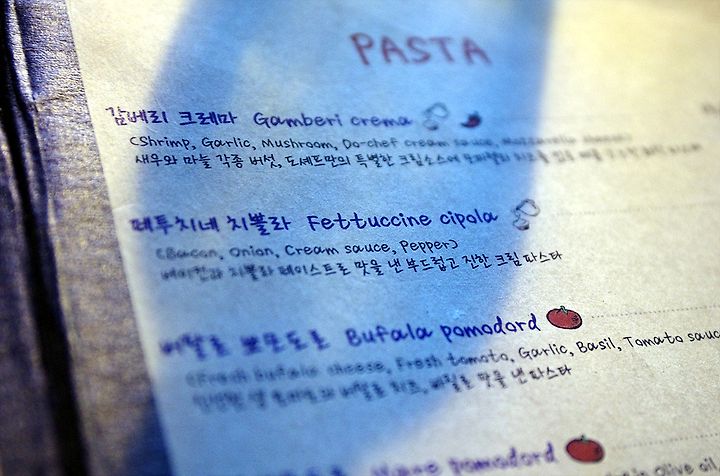 PASTA
감베리 크레마 Gamberi crema
(Shrimp, Garlic, Mushroom, Do-chef cream sauce, Mozzarella cheese)
새우와 마늘 각종 버섯, 도셰프만의 특별한 크림소스에
페투치네 치뽈라 Fettuccine cipola
(Bacon, Onion, Cream sauce, Pepper)
베이컨과 치뽈라 페이스트로 맛을 낸 부드럽고 진한 크림 파스타
버팔로 뽀모도로 Bufala pomodord
(Fresh bufala cheese, Fresh tomato, Garlic, Basil, Tomato sauc
버팔로 치즈, 바질로 맛을 낸 파스타
pomodord
Olive oil